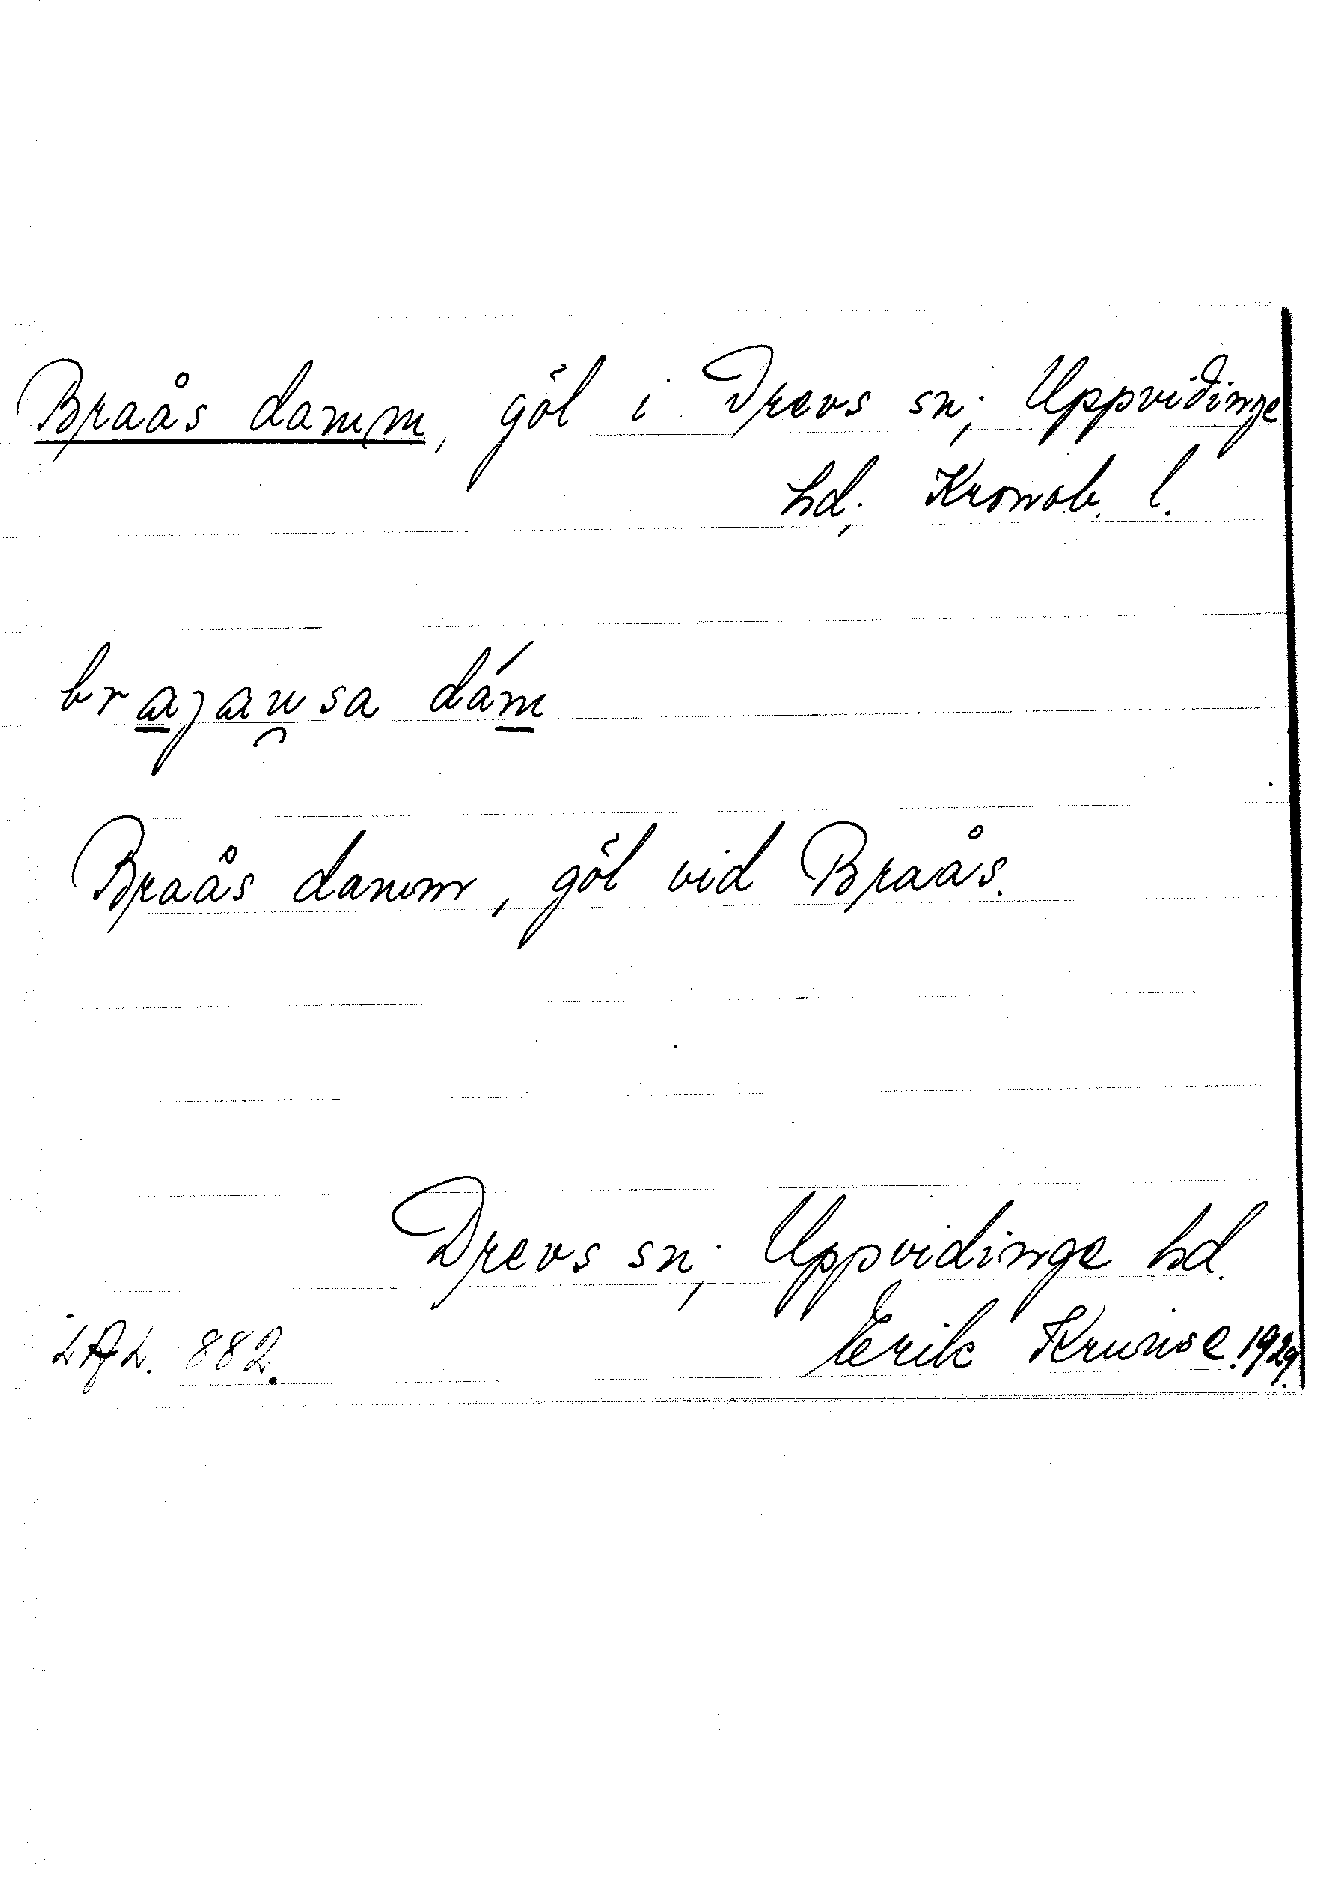 Braås damm, göl i Drevs sn; Uppvidinge
hd; Kronob. l.
brajausa dám
Braås damm, göl vid Braås.
Drevs sn; Uppvidinge hd.
LAL. 882. Erik Krunse. 1929.